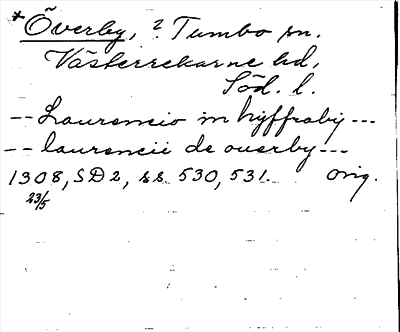 *Överby, ? Tumbo sn.
Västerrekarne hd,
Söd. l.
-- Laurencio in hyffraby ---
-- laurencii de ouerby ---
1308, SD2, ss. 530, 531. Orig.
23/5